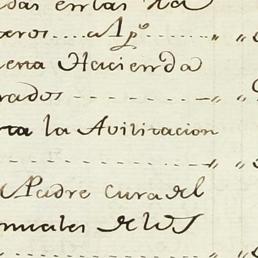 das en las Ha
eros.... a Ap.º
uena Hacienda
rados
ra la Avilitacion
Padre cura del
nuales de los